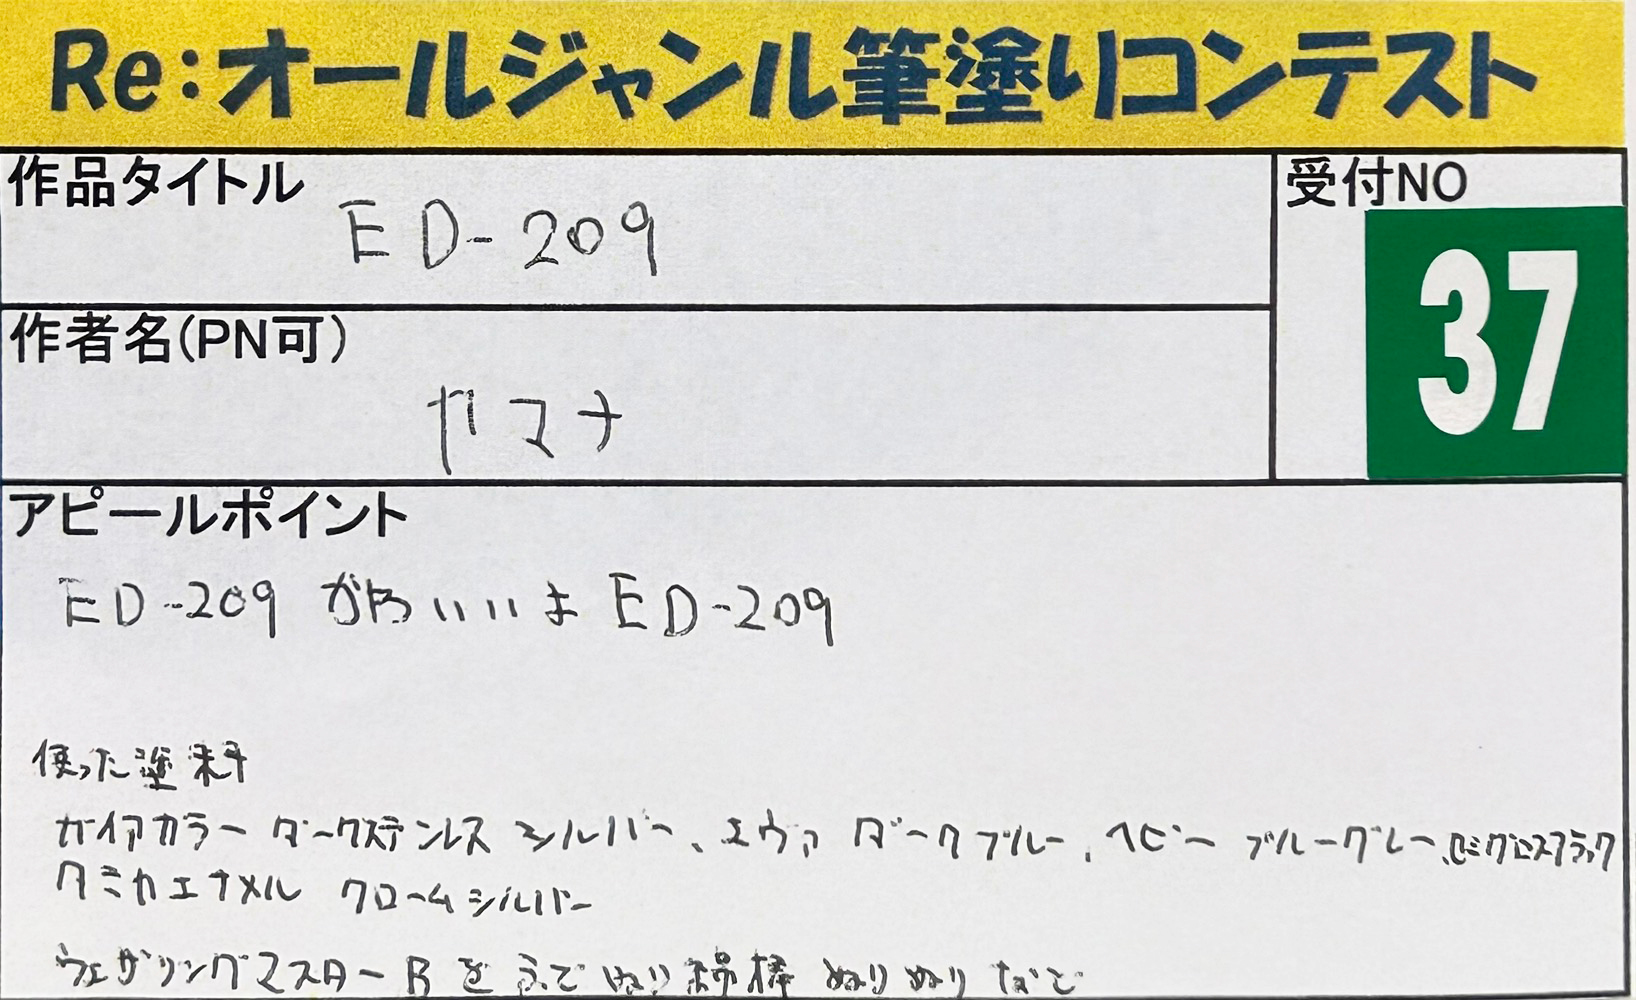 Re:オールジャンル筆塗りコンテスト
作品タイトル
ED-209
受付NO
37
作者名(PN可)
ヤマナ
アピールポイント
ED-209 がかわいいよ ED-209
使った塗料
ガイアカラー ダークステンレスシルバー、エヴァ ダークブルー、ヘビーブルーグレー、セミグロスブラック
タミヤエナメル クロームシルバー
ウェザリングマスターBをふでぬり綿棒ぬりぬりなど